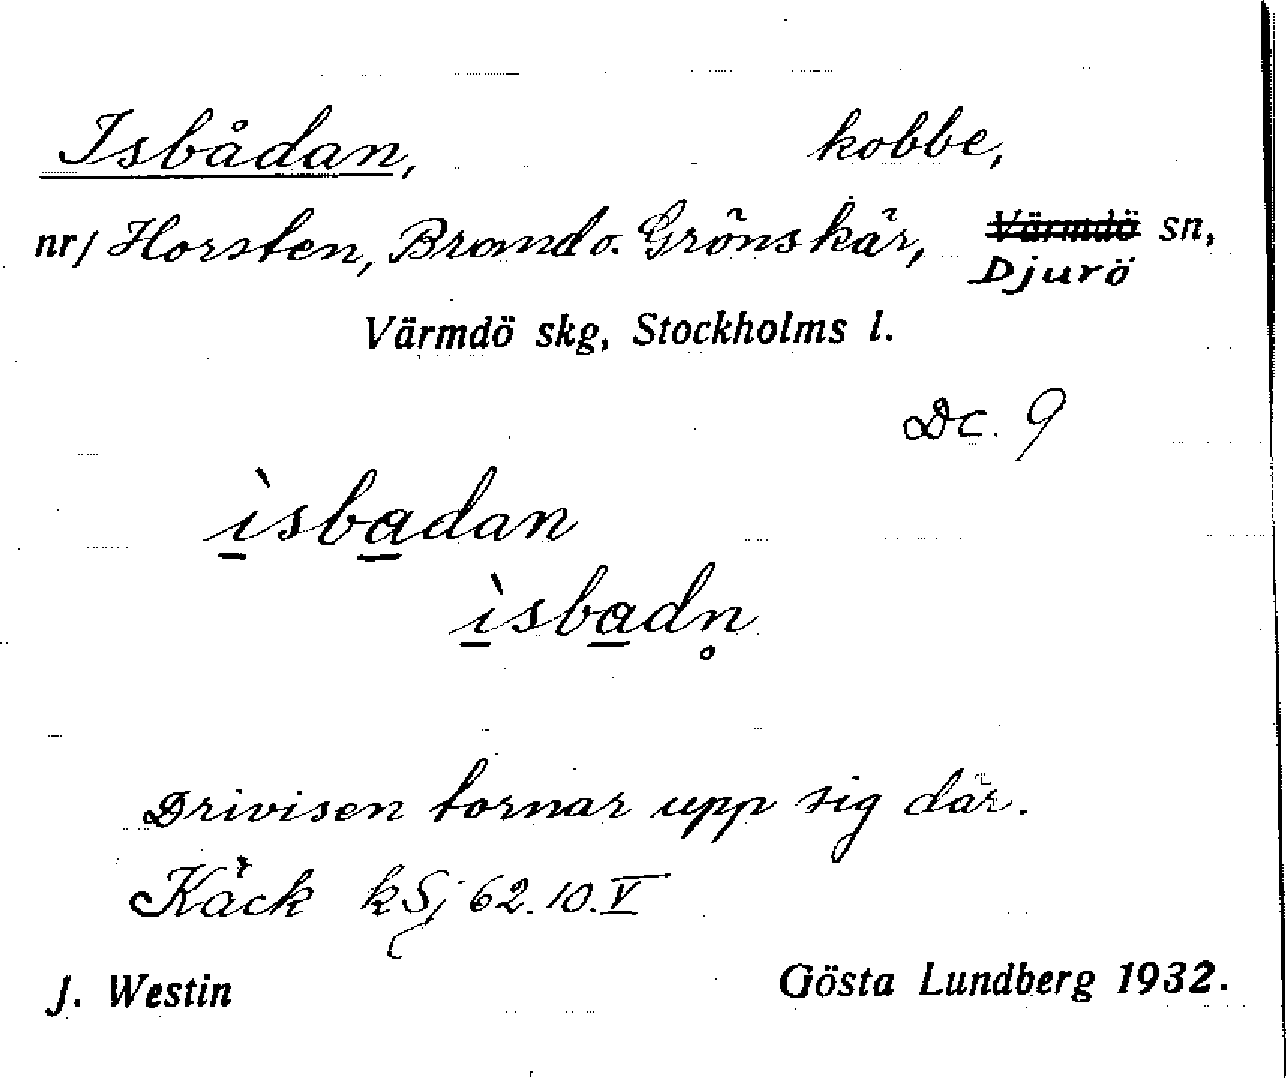 Isbådan, kobbe,
nr/ Horsten, Brand o. Grönskär, Värmdö sn,
Djurö
Värmdö skg, Stockholms l.
Dc. 9
ìsbadan
ìsbadn̥
Drivisen tornar upp sig där.
Käck kSj 62.10.V
J. Westin Gösta Lundberg 1932.